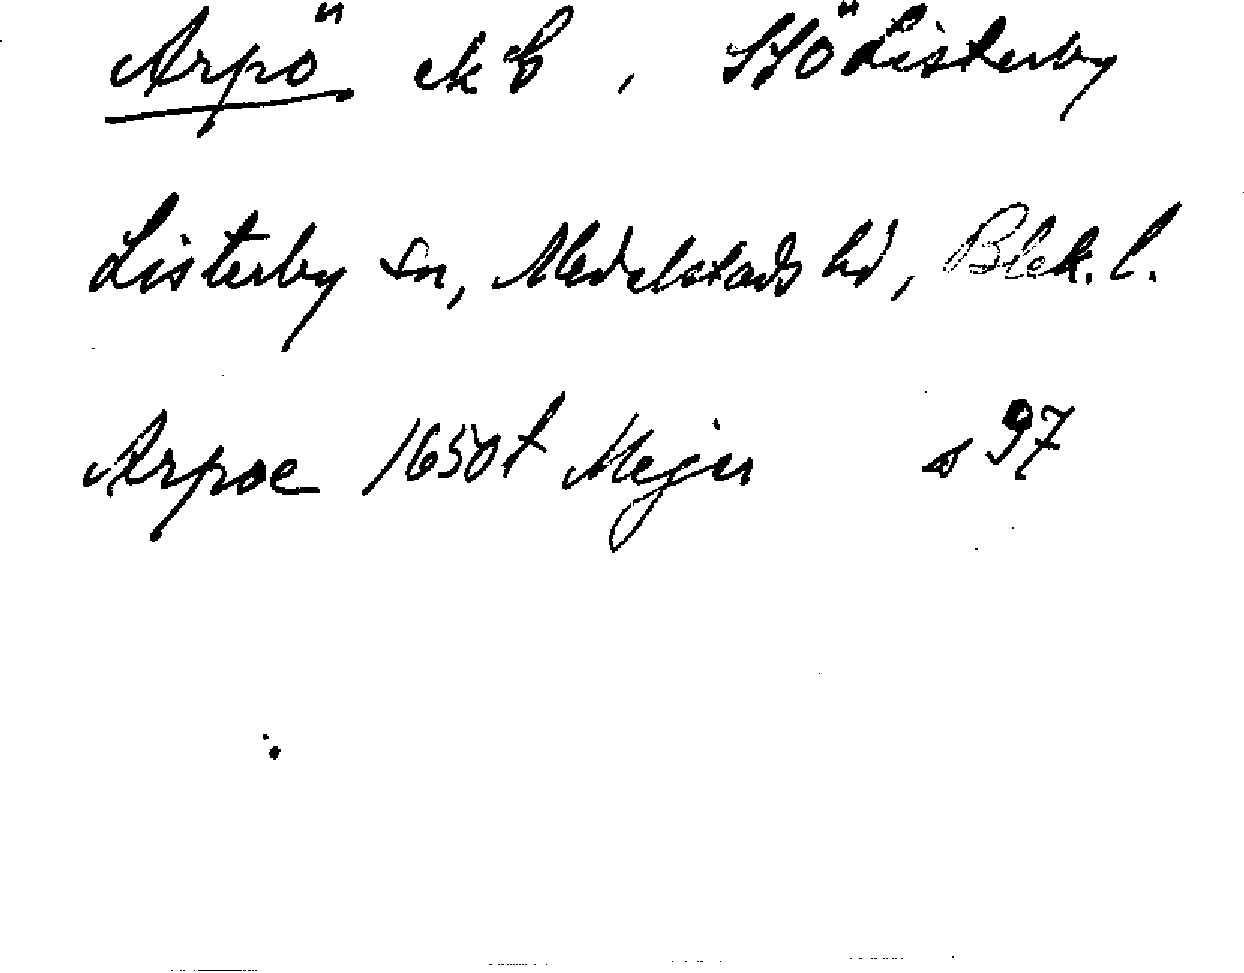 Arpö ek C, SSÖ Listerby
Listerby sn, Medelstads hd, Blek. l.
Arpoe 1650t Mejer s 97